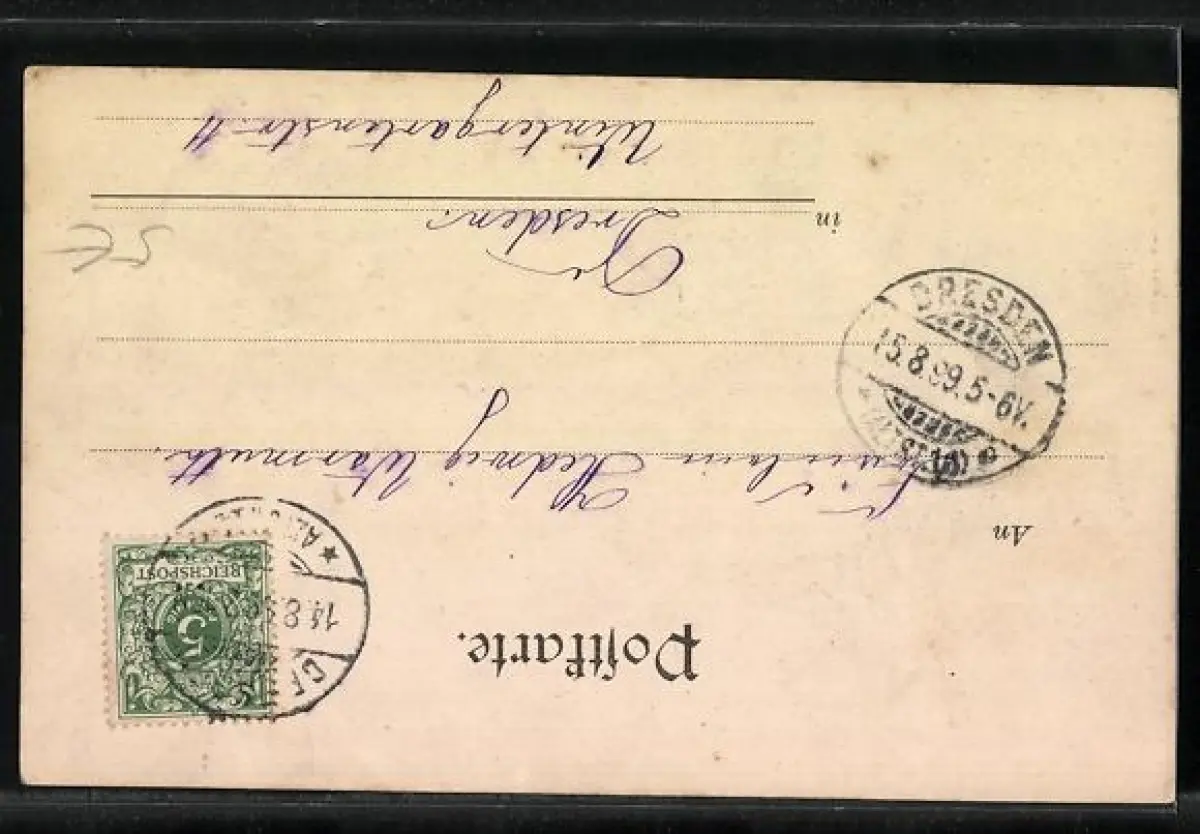 Postkarte.
An
Fräulein Hedwig Warmuth.
in
Dresden.
Wintergartenstr. 11
REICHSPOST
5
14.8.99
DRESDEN
15.8.99.5-6V.
5€